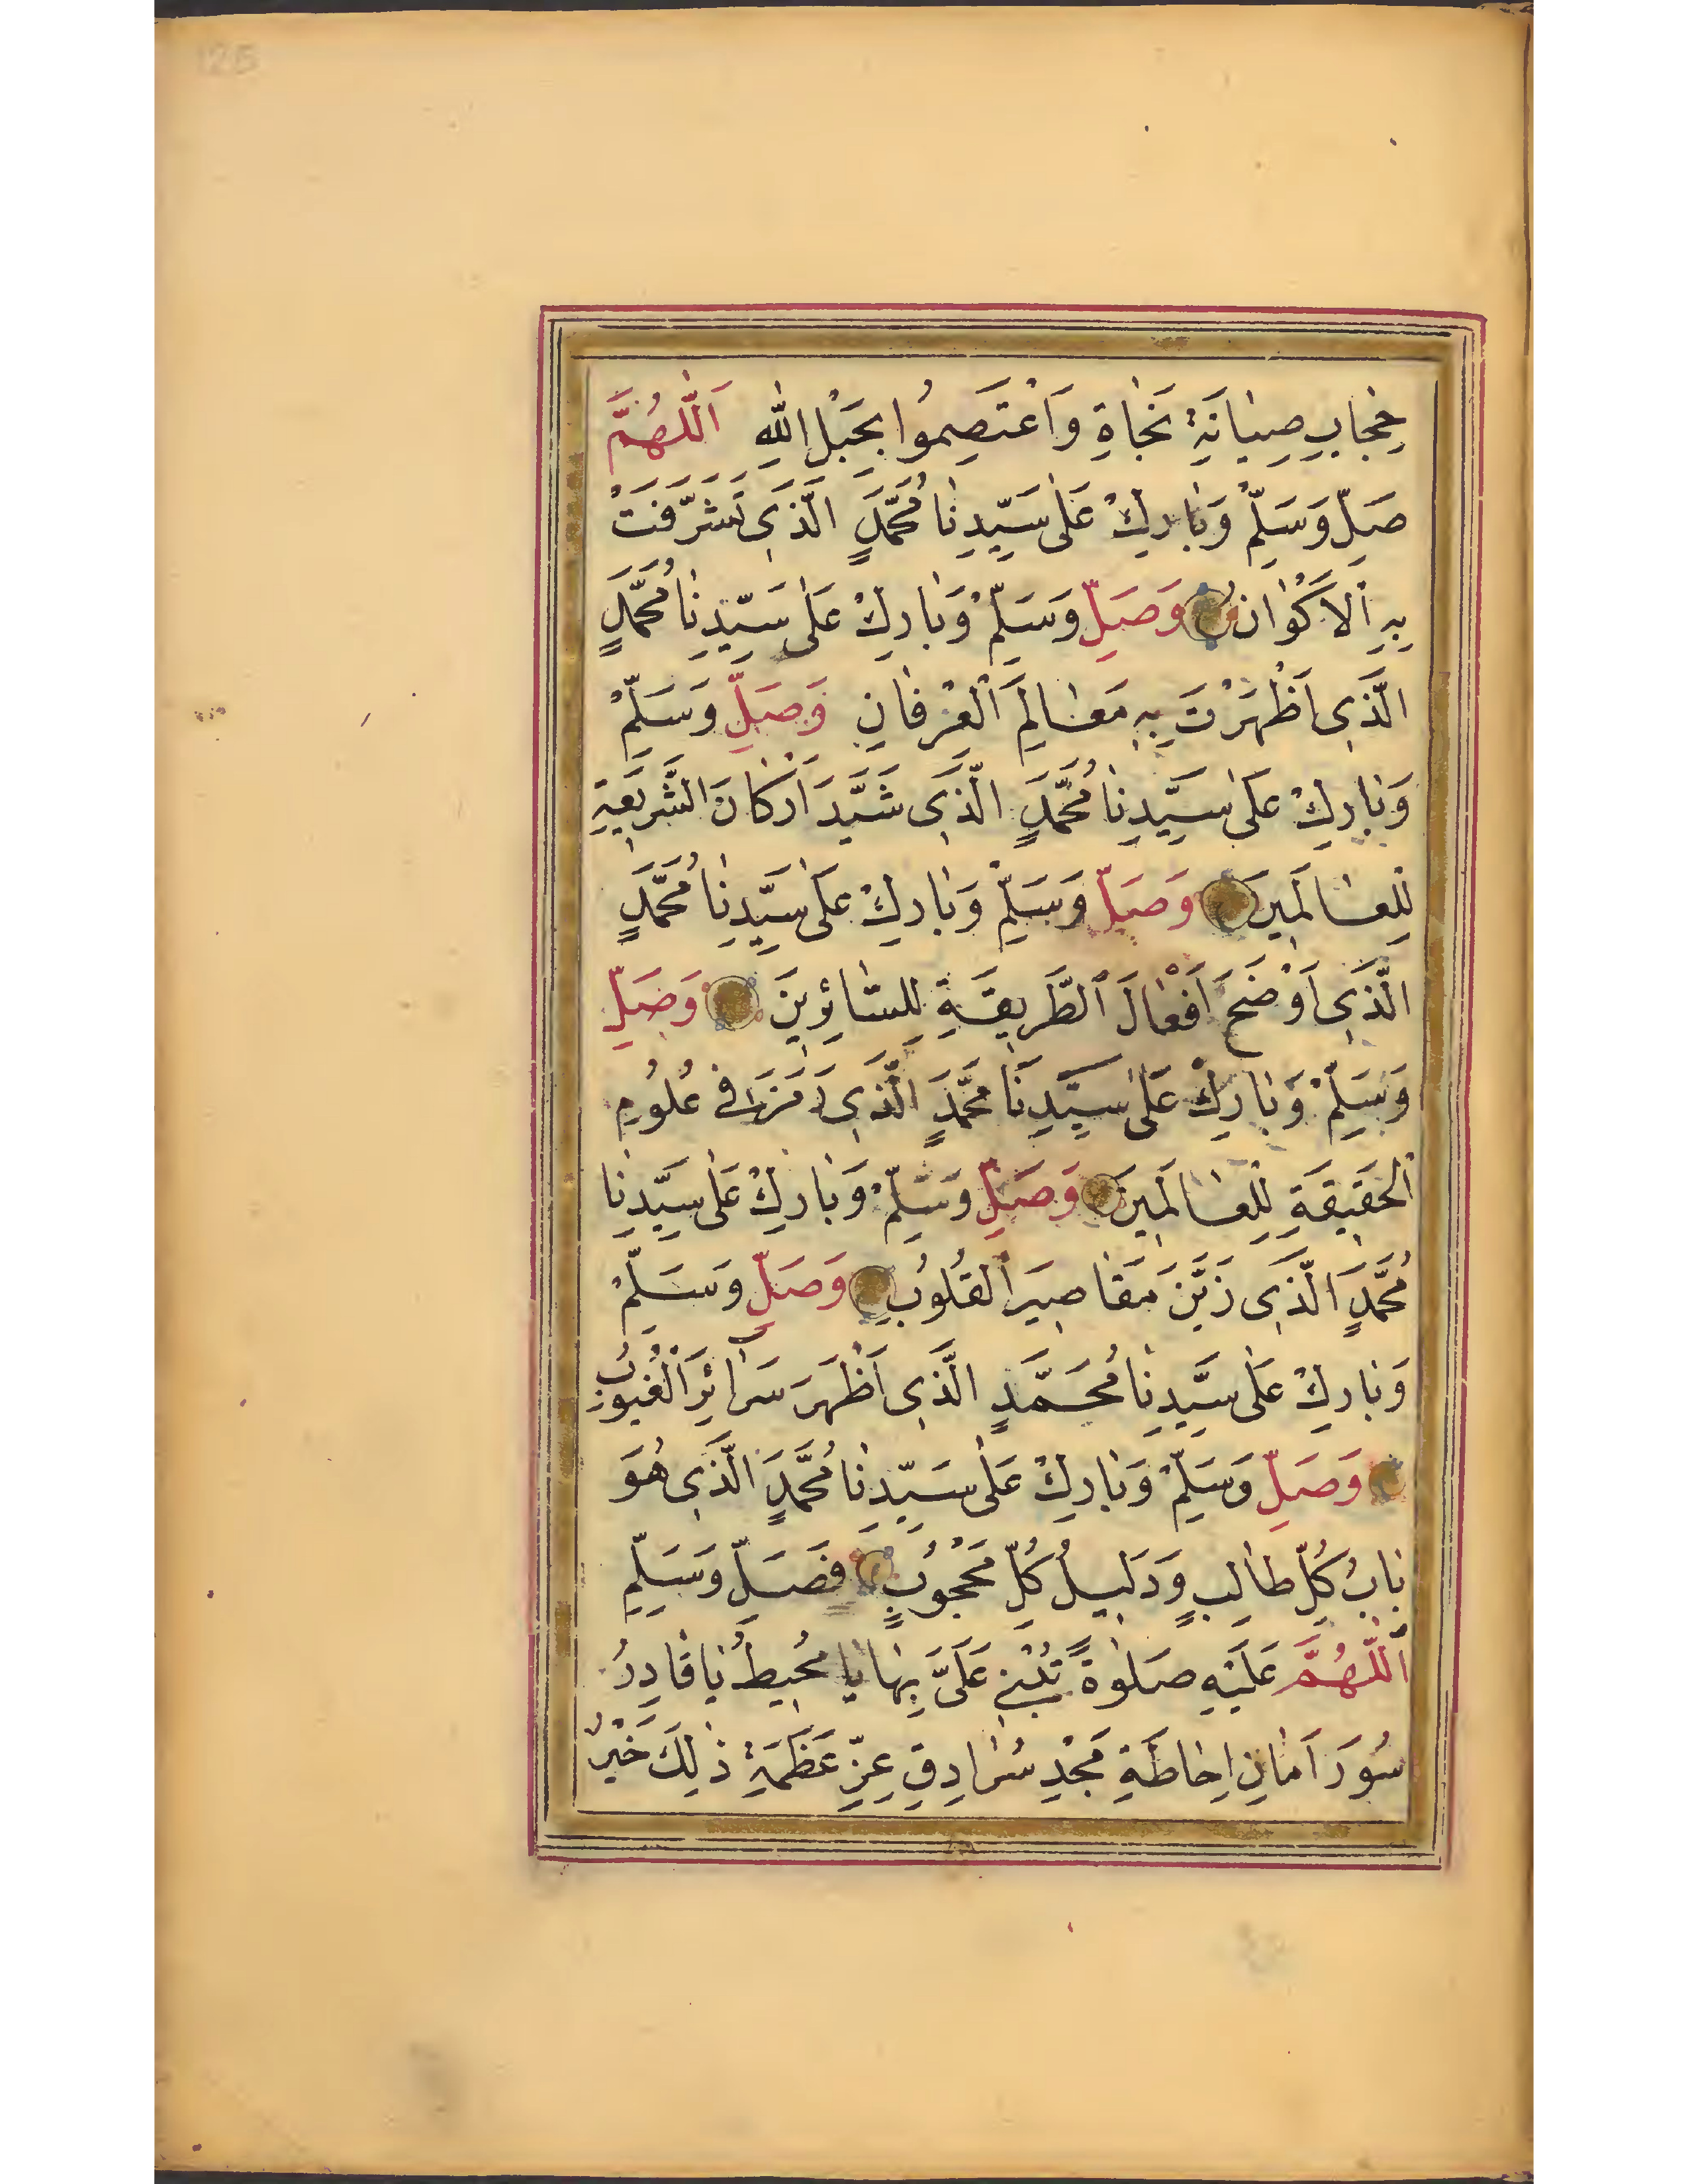 125
حِجَابِ صِيَانَةِ نَجَاةِ وَاعْتَصِمُوا بِحَبْلِ اللّٰهِ اَللّٰهُمَّ
صَلِّ وَسَلِّمْ وَبَارِكْ عَلٰى سَيِّدِنَا مُحَمَّدٍ الَّذِى تَشَرَّفَتْ
بِهِ الْاَكْوَانُ وَصَلِّ وَسَلِّمْ وَبَارِكْ عَلٰى سَيِّدِنَا مُحَمَّدٍ
الَّذِى اَظْهَرْتَ بِهِ مَعَالِمَ الْعِرْفَانِ وَصَلِّ وَسَلِّمْ
وَبَارِكْ عَلٰى سَيِّدِنَا مُحَمَّدٍ الَّذِى شَيَّدَ اَرْكَانَ الشَّرِيعَةِ
لِلْعَالَمِينَ وَصَلِّ وَسَلِّمْ وَبَارِكْ عَلٰى سَيِّدِنَا مُحَمَّدٍ
الَّذِى اَوْضَحَ اَفْعَالَ الطَّرِيقَةِ لِلسَّائِرِينَ وَصَلِّ
وَسَلِّمْ وَبَارِكْ عَلٰى سَيِّدِنَا مُحَمَّدٍ الَّذِى رَمَزَ فِى عُلُومِ
الْحَقِيقَةِ لِلْعَالَمِينَ وَصَلِّ وَسَلِّمْ وَبَارِكْ عَلٰى سَيِّدِنَا
مُحَمَّدٍ الَّذِى زَيَّنَ مَقَاصِيرَ الْقُلُوبِ وَصَلِّ وَسَلِّمْ
وَبَارِكْ عَلٰى سَيِّدِنَا مُحَمَّدٍ الَّذِى اَظْهَرَ سَرَآئِرَ الْغُيُوبِ
وَصَلِّ وَسَلِّمْ وَبَارِكْ عَلٰى سَيِّدِنَا مُحَمَّدٍ الَّذِى هُوَ
بَابُ كُلِّ طَالِبٍ وَدَلِيلُ كُلِّ مَحْجُوبٍ فَصَلِّ وَسَلِّمِ
اَللّٰهُمَّ عَلَيْهِ صَلٰوةً عَلَىَّ بِهَا يَا مُحِيطُ يَا قَادِرُ
سُورَ اَمَانِ اِحَاطَةِ مَجْدِ سُرَادِقِ عِزِّ عَظَمَةِ ذٰلِكَ خَيْرٌ